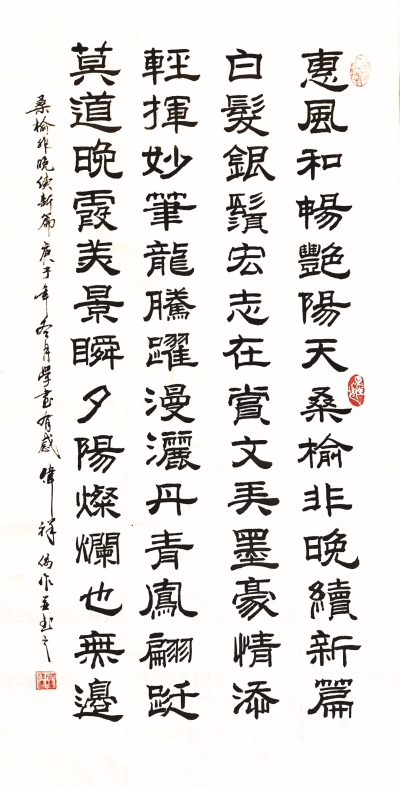 惠風和暢豔陽天桑榆非晚續新篇
白髮銀鬚宏志在賞文弄墨豪情添
輕揮妙筆龍騰躍漫灑丹青鳳翩跹
莫道晚霞美景瞬夕陽燦爛也無邊
桑榆非晚续新篇庚子年冬月學書有感偉祥偶作並书之